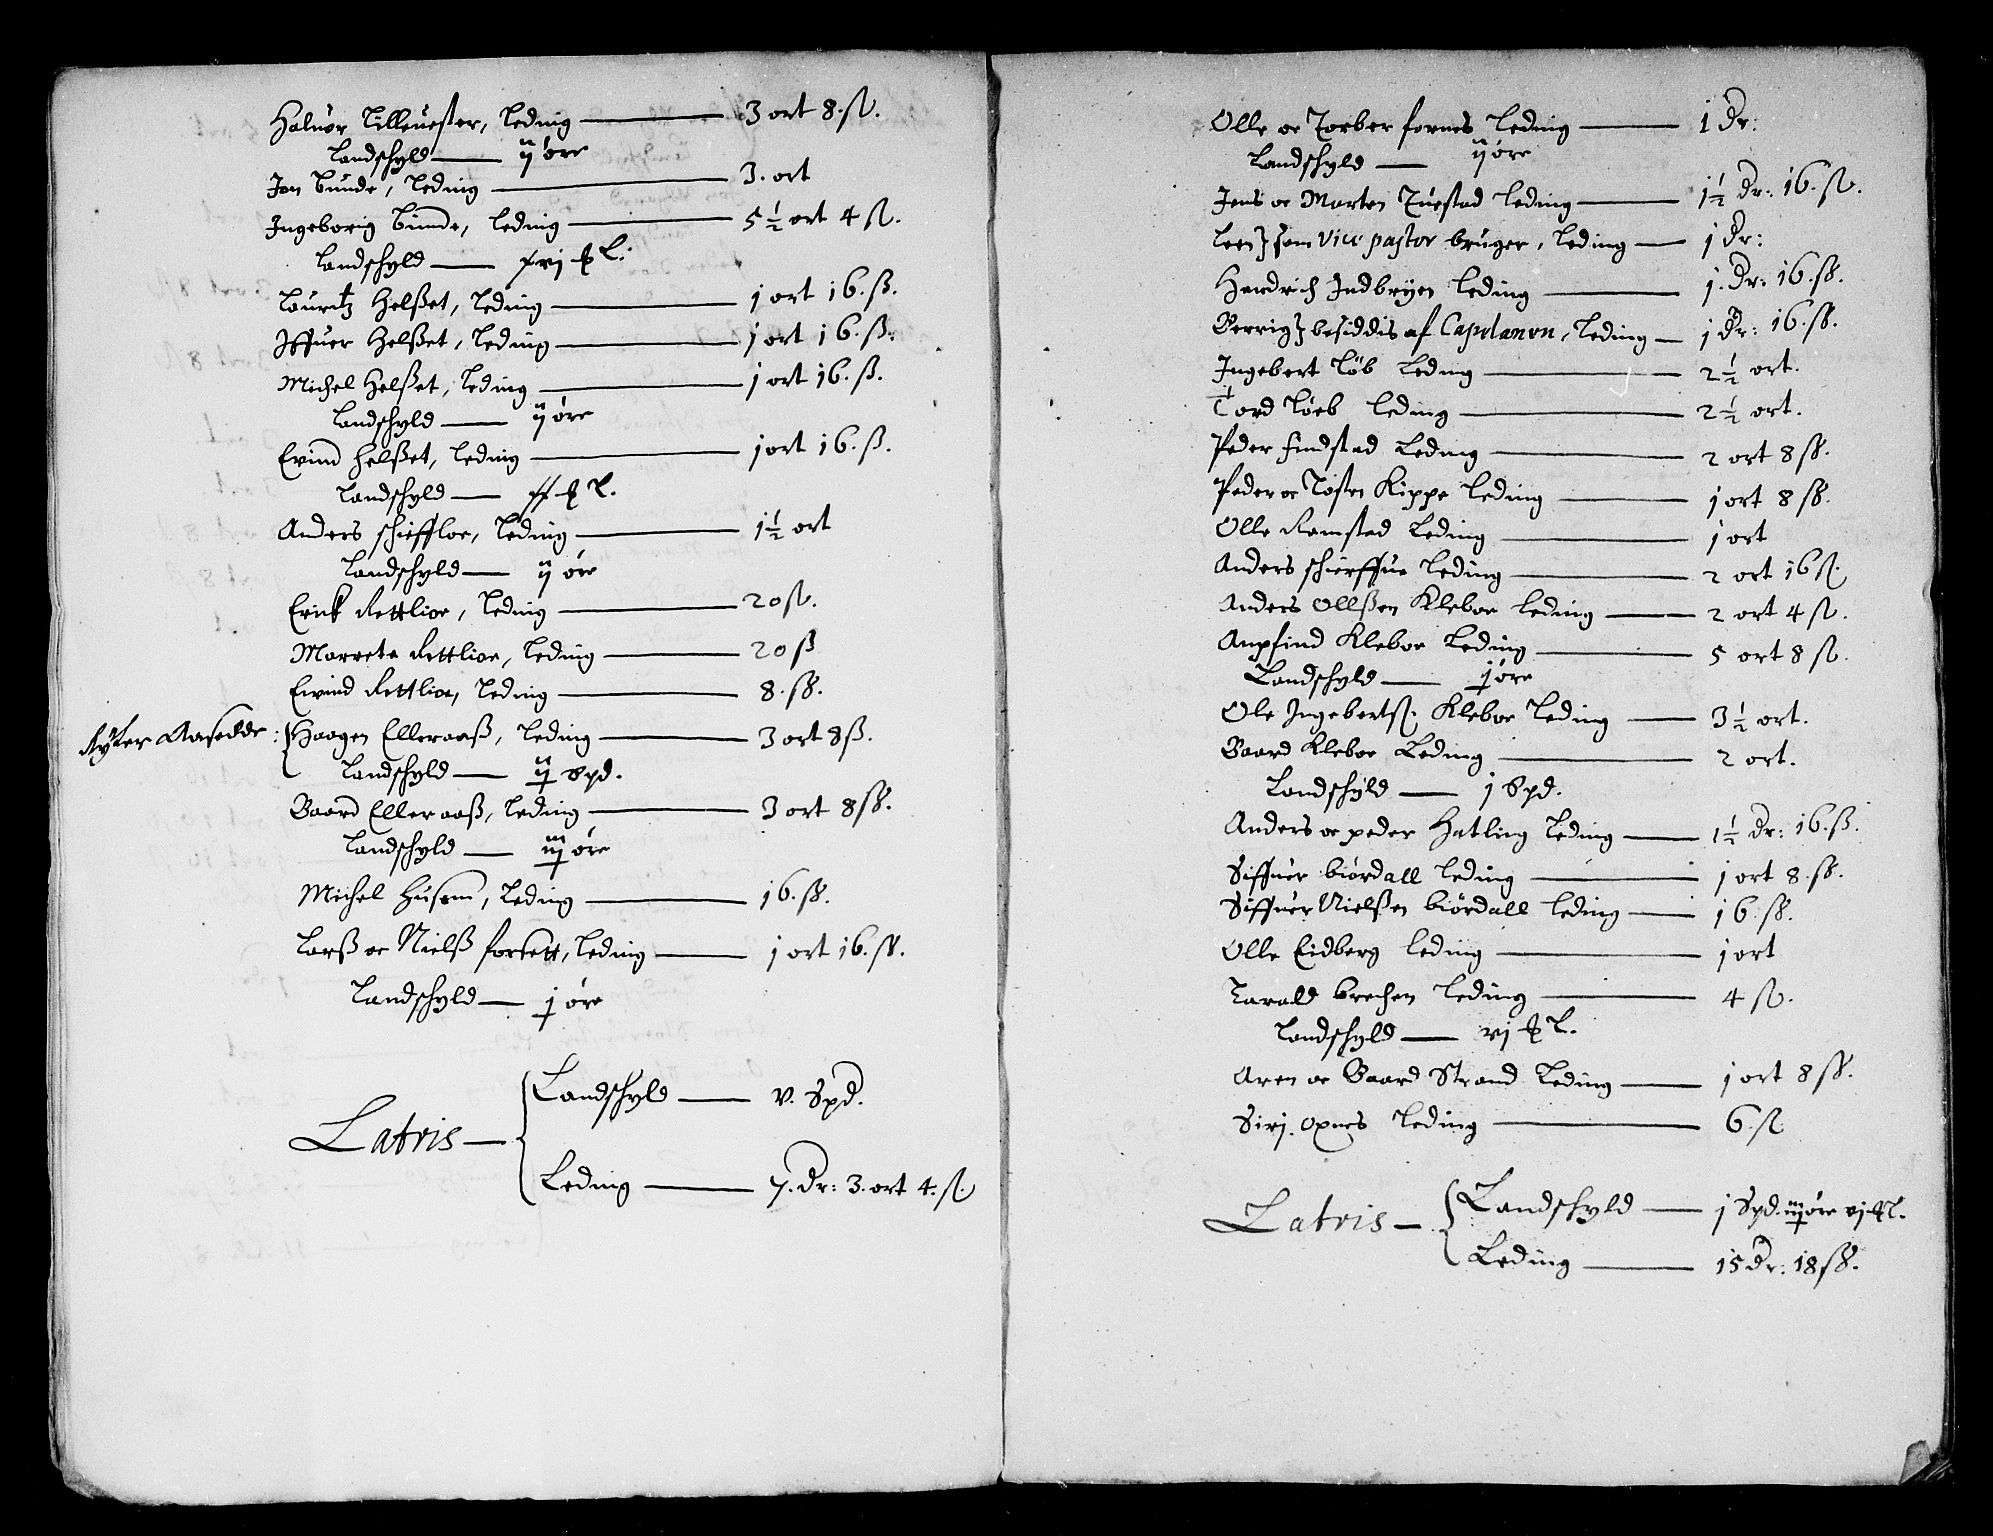 Haluor Lilleuester, Leding — 3 ort 8 ß.
Landschyld — ij øre
Jon Bunde, Leding — 3. ort
Ingeborig Bunde, Leding — 5½ ort 4 ß.
Landschyld —
Lauritz Helßet, Leding — j ort 16. ß.
Iffuer Helßet, Leding — j ort 16. ß.
Michel Helßet, Leding — j ort 16. ß.
Landschyld — ij øre
Evind Helßet, Leding — j ort 16. ß.
Landschyld —
Anders schieffloe, Leding — 1½ ort
Landschyld — ij øre
Erick Rettlioe, Leding — 20 ß.
Marrete Rettlioe, Leding — 20 ß
Eivind Rettlioe, Leding — 8. ß.
Rytter Aasedde: Haagen Elleraaß, Leding — 3 ort 8 ß.
Landschyld — ij Spd.
Baard Elleraaß, Leding — 3 ort 8 ß.
Landschyld — iij øre
Michel Husem, Leding — 16. ß.
Larß oc Nielß forsett, Leding — j ort 16. ß.
Landschyld — j øre
Latris —
Landschyld — v. Spd.
Leding — 7. dr: 3. ort 4. ß.
Olle oc Torber fornes Leding — 1 Dr:
Landschyld — ij øre
Jens oc Marten Tuestad Leding — 1½ Dr: 16. ß.
Leen} som vice pastor bruger, Leding — j Dr:
Hendrich Indbryen Leding — j. Dr: 16. ß.
Berrig} besiddis af Capelanen, Leding — j Dr: 16. ß.
Ingebert Løb Leding — 2½ ort.
Tord Løeb Leding — 2½ ort.
Peder findstad Leding — 2 ort 8 ß.
Peder oc Tosten Kippe Leding — j ort 8 ß.
Olle Ramstad Leding — j ort
Anders schierffue Leding — 2 ort 16 ß.
Anders Ollßen Kleboe Leding — 2 ort 4 ß.
Anpfind Kleboe Leding — 5 ort 8 ß.
Landschyld — j øre
Ole Ingebertß. Kleboe Leding — 3½ ort.
Baard Kleboe Leding — 2 ort.
Landschyld — j Spd.
Anders oc peder Hatling Leding — 1½ Dr: 16. ß.
Siffuer biørdall Leding — j ort 8. ß.
Siffuer Nielßen biørdall Leding — j6 ß.
Olle Eidberg Leding — j ort
Tarald brechen Leding — 4 ß.
Landschyld — vj
Aren oc Baard Strand Leding — j ort 8 ß.
Sirj. Oxnes Leding — 6. ß
Latris —
Landschyld — j Spd. iij øre vj
Leding — 15 Dr: 18 ß.